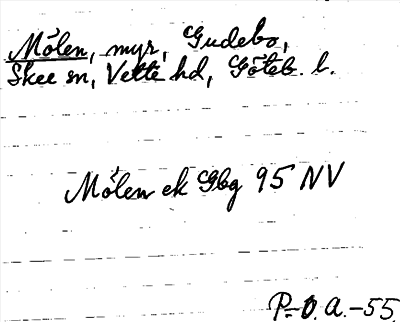 Mólen, myr, Gudebo,
Skee sn, Vette hd, Göteb. l.
Mólen ek Gbg 95 NV
P.-O. A. -55